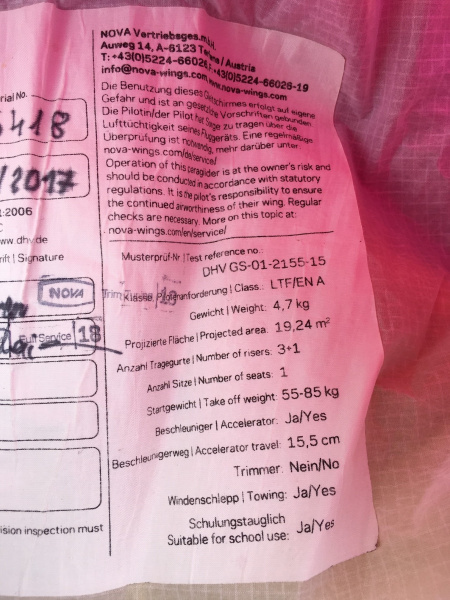 NOVA Vertriebsges.m.b.H.
Auweg 14, A-6123 Terfens / Austria
T: +43(0)5224-66026, F: +43(0)5224-66026-19
info@nova-wings.com, www.nova-wings.com
Die Benutzung dieses Gleitschirmes erfolgt auf eigene
Gefahr und ist an gesetzliche Vorschriften gebunden.
Die Pilotin/der Pilot hat Sorge zu tragen über die
Lufttüchtigkeit seines Fluggeräts. Eine regelmäßige
Überprüfung ist notwendig, mehr darüber unter:
nova-wings.com/de/service/
Operation of this paraglider is at the owner's risk and
should be conducted in accordance with statutory
regulations. It is the pilot's responsibility to ensure
the continued airworthiness of their wing. Regular
checks are necessary. More on this topic at:
nova-wings.com/en/service/
rial No.
418
/2017
:2006
ww.dhv.de
rift | Signature
NOVA
Full Service 18
ision inspection must
Musterprüf-Nr | Test reference no.:
DHV GS-01-2155-15
Trim 18
Klasse, Pilotenanforderung | Class.: LTF/EN A
Gewicht | Weight: 4,7 kg
Projizierte Fläche | Projected area: 19,24 m²
Anzahl Tragegurte | Number of risers: 3+1
Anzahl Sitze | Number of seats: 1
Startgewicht | Take off weight: 55-85 kg
Beschleuniger | Accelerator: Ja/Yes
Beschleunigerweg | Accelerator travel: 15,5 cm
Trimmer: Nein/No
Windenschlepp | Towing: Ja/Yes
Schulungstauglich
Suitable for school use: Ja/Yes